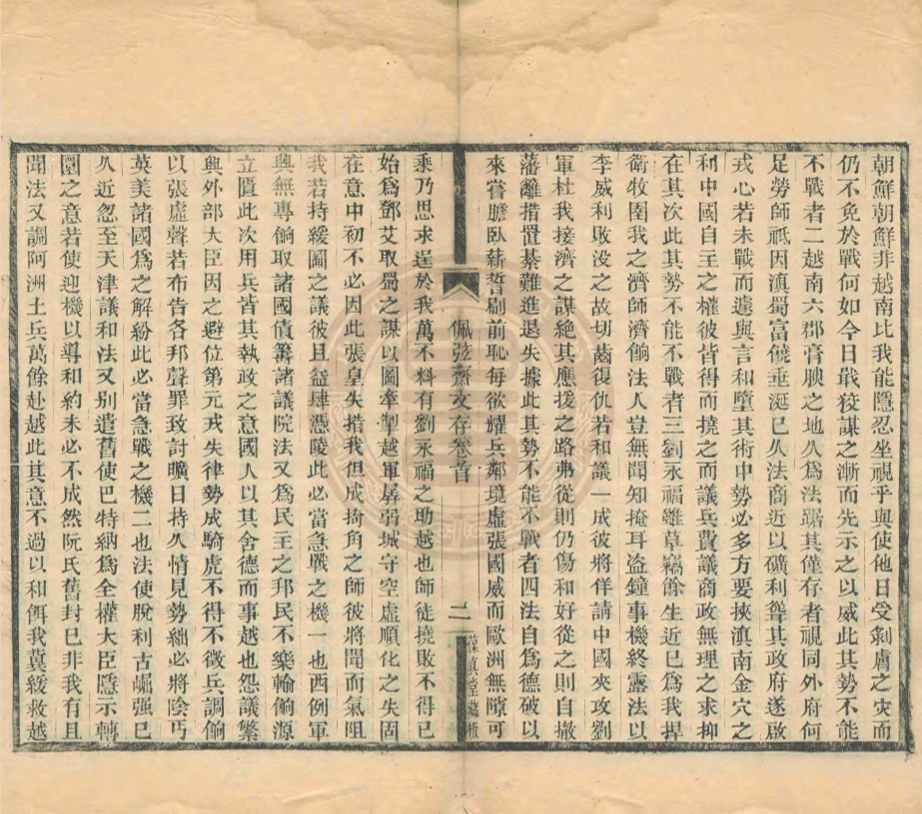 朝鮮朝鮮非越南比我能隱忍坐視乎與使他日受剝膚之灾而
仍不免於戰何如今日戢狡謀之漸而先示之以威此其勢不能
不戰者二越南六郡膏腴之地久為法踞其僅存者視同外府何
足勞師祇因滇蜀富饒垂涎已久法商近以礦利聳其政府遂啟
戎心若未戰而遽與言和墮其術中勢必多方要挾滇南金穴之
利中國自主之權彼皆得而撓之而議兵費議商政無理之求抑
在其次此其勢不能不戰者三劉永福雖草竊餘生近已為我捍
衛牧圉我之濟師濟餉法人豈無聞知掩耳盜鐘事機終露法以
李威利敗没之故切齒復仇若和議一成彼將佯請中國夾攻劉
軍杜我接濟之謀絕其應援之路弗從則仍傷和好從之則自撤
藩離措置綦難進退失據此其勢不能不戰者四法自為德破以
來嘗膽臥薪誓刷前恥每欲耀兵鄰境虛張國威而歐洲無隙可
佩弦齋文存卷首
二
葆真堂藏板
乘乃思求逞於我萬不料有劉永福之助越也師徒撓敗不得已
始為鄧艾取蜀之謀以圖牽掣越軍孱弱城守空虛順化之失固
在意中初不必因此張皇失措我但成掎角之師彼將聞而氣阻
我若持緩圖之議彼且益肆憑陵此必當急戰之機一也西例軍
興無專餉取諸國債籌諸議院法又為民主之邦民不樂輸餉源
立匱此次用兵皆其執政之意國人以其舍德而事越也怨議繁
興外部大臣因之避位第元戎失律勢成騎虎不得不徵兵調餉
以張虛聲若布告各邦聲罪致討曠日持久情見勢絀必將陰丐
英美諸國為之解紛此必當急戰之機二也法使脫利古崛強已
久近忽至天津議和法又別遣舊使巴特納為全權大臣隱示轉
圜之意若使迎機以導和約未必不成然阮氏舊封已非我有且
聞法又調阿洲土兵萬餘赴越此其意不過以和餌我冀緩救越